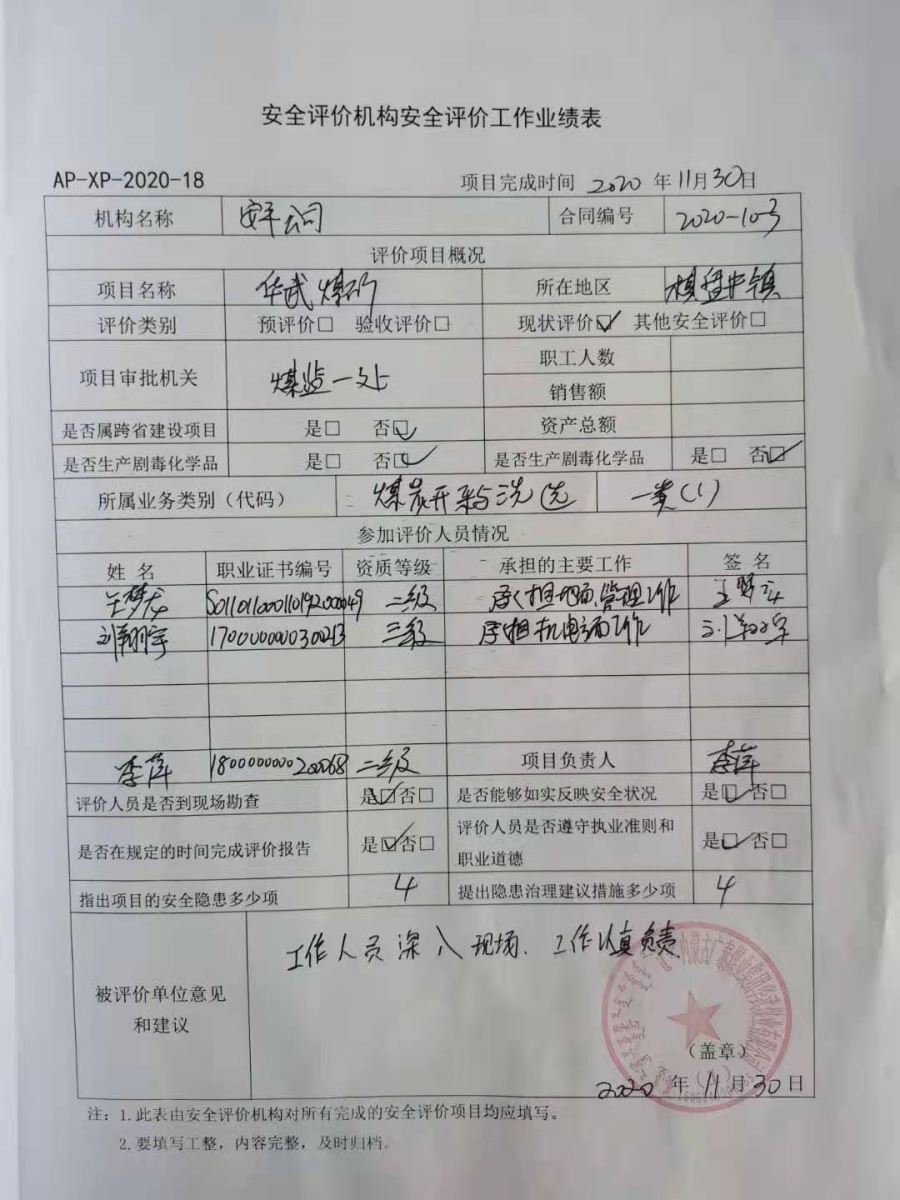 安全评价机构安全评价工作业绩表
AP-XP-2020-18 项目完成时间 2020 年 11月 30日
机构名称 安平公司 合同编号 2020-103
评价项目概况
项目名称 华武煤矿 所在地区 棋盘井镇
评价类别 预评价□ 验收评价□ 现状评价☑ 其他安全评价□
项目审批机关 煤监一处 职工人数
销售额
是否属跨省建设项目 是□ 否☑ 资产总额
是否生产剧毒化学品 是□ 否☑ 是否生产剧毒化学品 是□ 否☑
所属业务类别（代码） 煤炭开采与洗选 一类(1)
参加评价人员情况
姓 名 职业证书编号 资质等级 承担的主要工作 签 名
S011011000110192000049 二级 承担地面、管理工作
刘翔宇 三级 承担机电方面工作 刘翔宇
李萍 1800000000200068 二级 项目负责人 李萍
评价人员是否到现场勘查 是☑否□ 是否能够如实反映安全状况 是☑否□
是否在规定的时间完成评价报告 是☑否□ 评价人员是否遵守执业准则和
职业道德 是☑否□
指出项目的安全隐患多少项 4 提出隐患治理建议措施多少项 4
被评价单位意见
和建议
工作人员深入现场、工作认真负责
（盖章）
2020 年 11 月 30 日
注：1.此表由安全评价机构对所有完成的安全评价项目均应填写。
2.要填写工整，内容完整，及时归档。